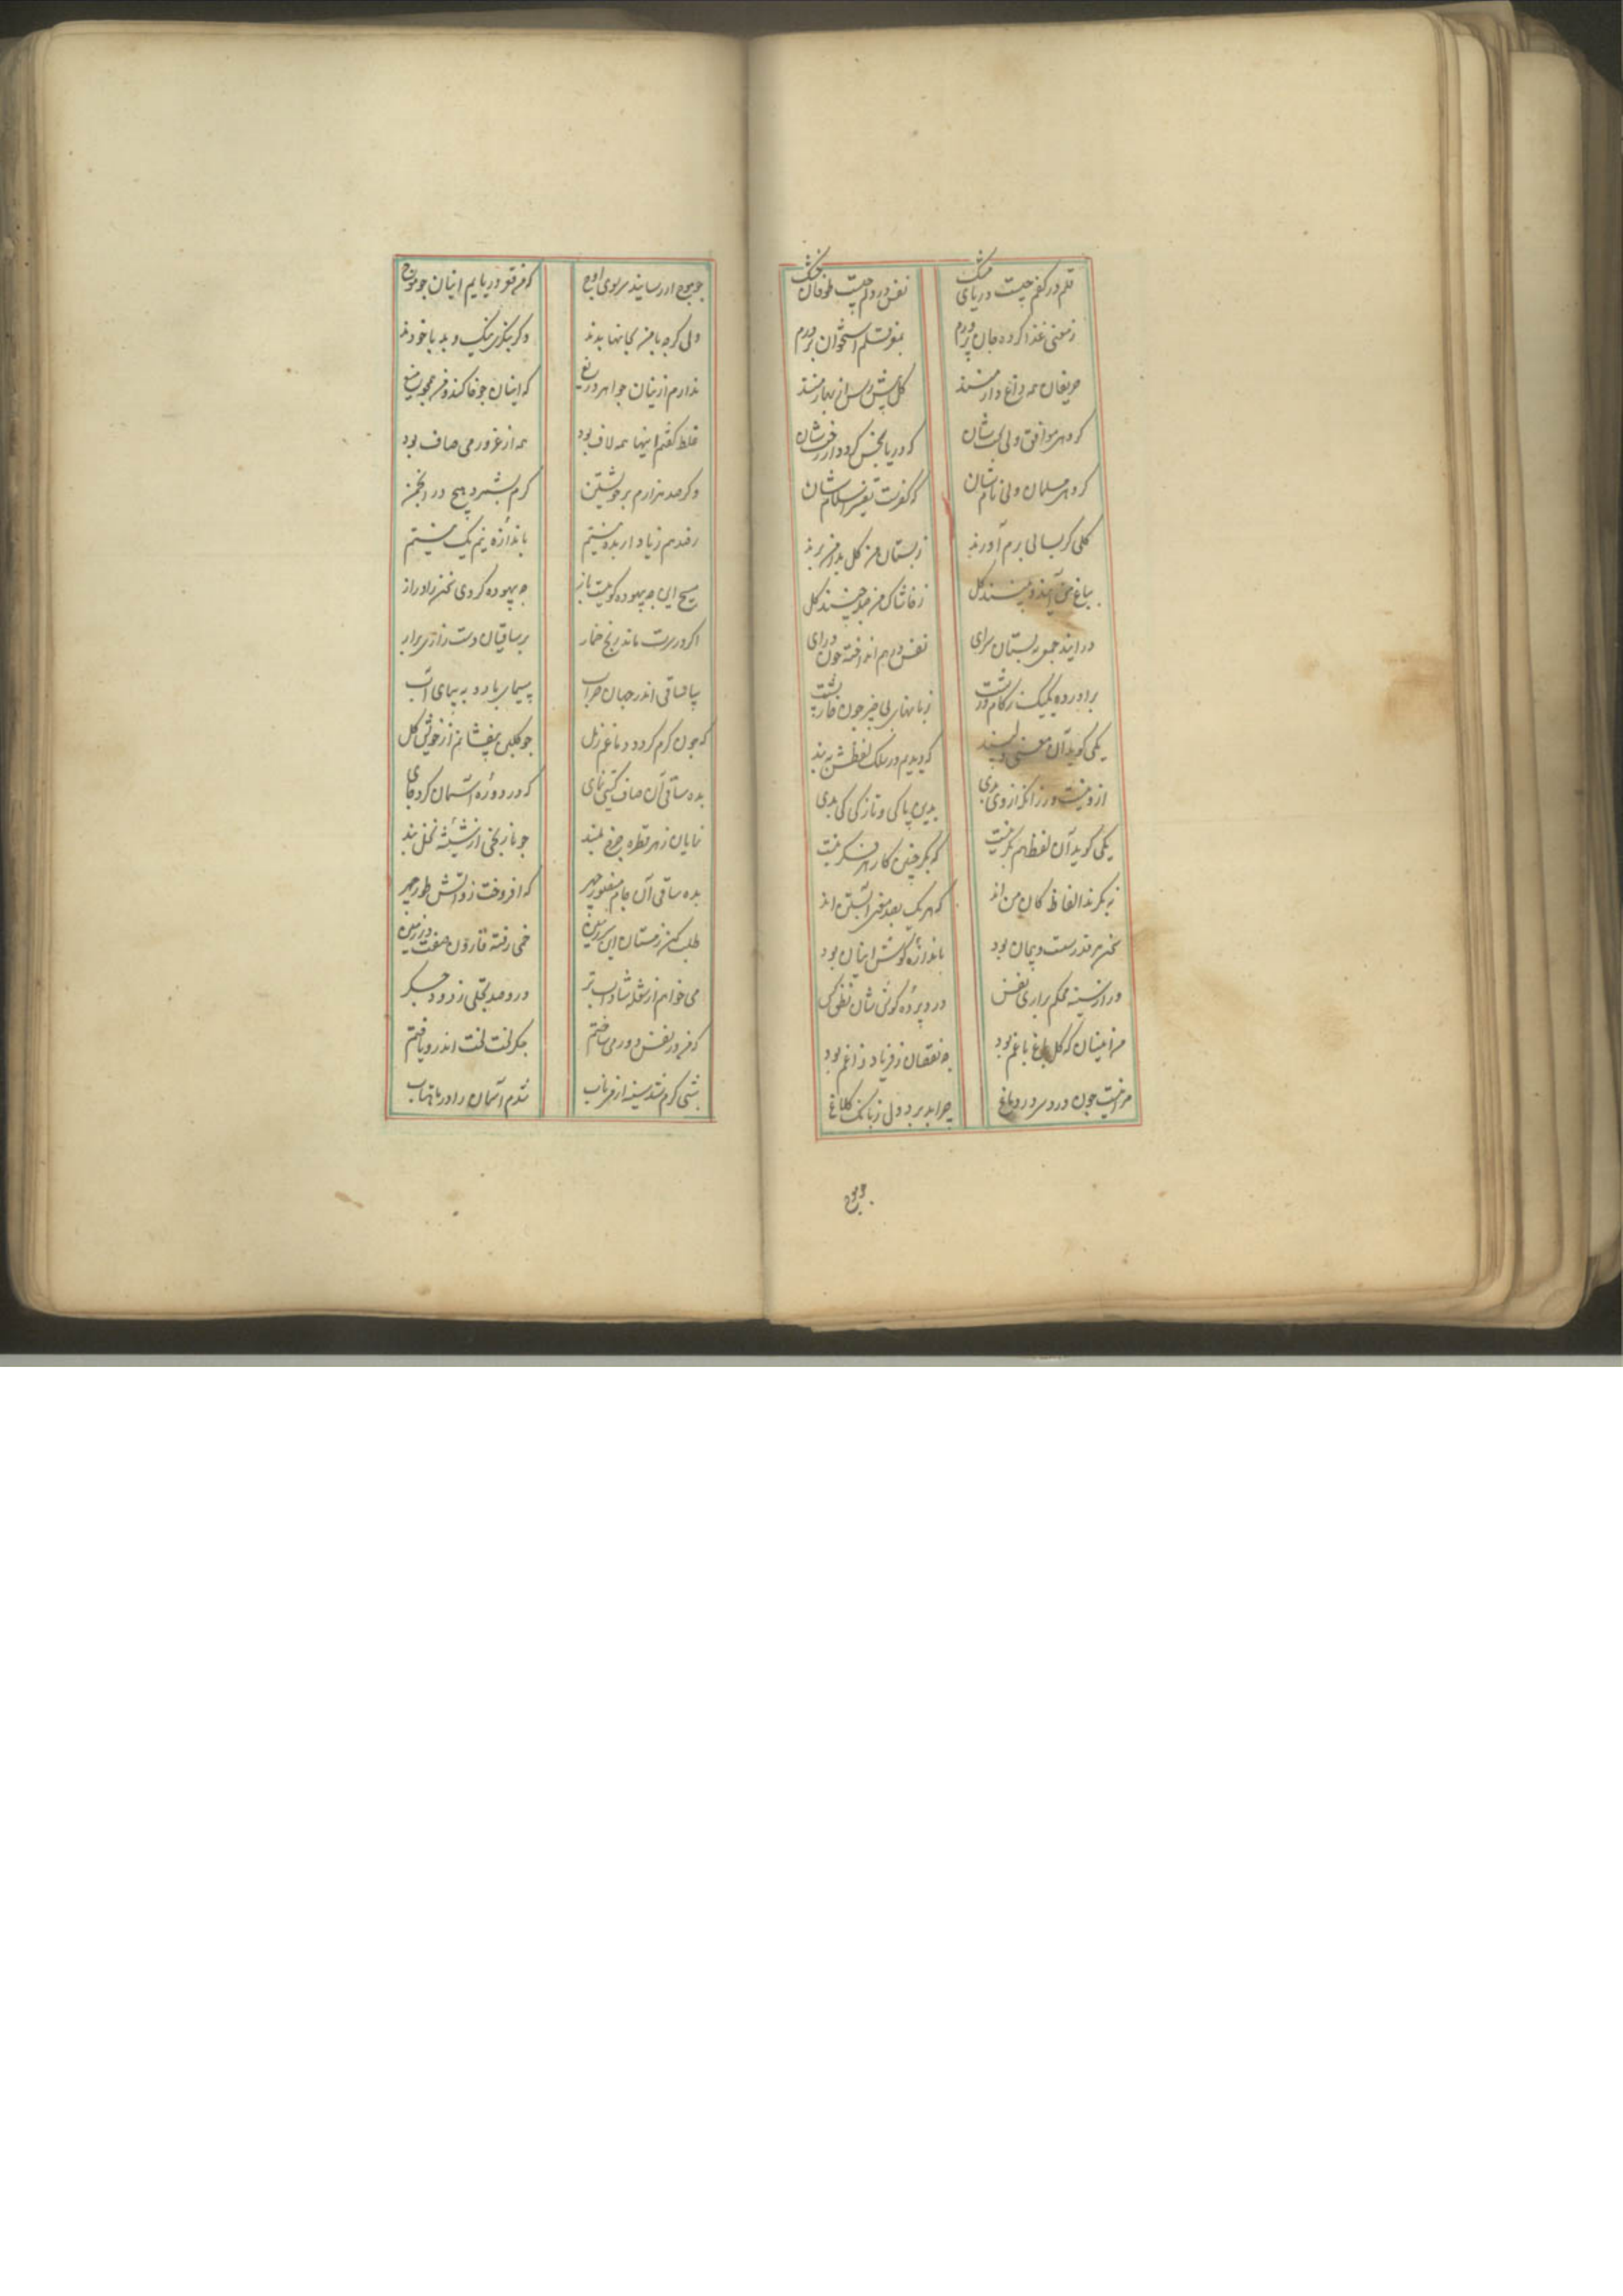 قلم در کفم چیست دریای مشک نفس در دلم چیست طوفان خشک
ز معنی غذا کرده جان پرورم بمو قلم استخوان پرورم
حریفان همه داغ دار منند گل پیش رس از بهار منند
گروهی موافق ولی کیشان که دریا بخس کرد دارد
گروهی مسلمان ولی نامشان که کفرست تفسیر اسلامشان
گلی گر بسالی برم آورند ز بستان من گل بدامن برند
بباغ من آیند و بینند گل ز خاشاک من چینند گل
در آیند جمعی به بستان سرای نفس در هم انداخته چون درای
برآورده یکیک ز کام درشت زبانهای بی خیر چون خارپشت
یکی گوید آن معنی دلپسند که دیدیم در سلک لفظش به بند
ازو نیست ورزانکه از وی بدی بدین پاکی و تازگی کی بدی
یکی گوید آن لفظ هم بکر نیست که بکر چنین کار هر فکر نیست
نه بکرند الفاظ کان من اند که هر یک بصد معنی آبستن اند
سخن هر قدر سست و پیمان بود باندازه گوش اینان بود
ور از سینه محکم برآری نفس درد پرده گوش شان نطق کس
من اینسان که گل باغ باغم بود چه نقصان ز فریاد زاغم بود
مرا نیست چون درد سر در دماغ چرا بد برد دل ز بانک کلاغ
چو موج
چو موج ار رسانند سر بوی اوج که من قعر دریایم اینان چو موج
ولی گرچه با من بجانها بدند وگر بنگری نیک و بد با خودند
ندارم ازینان جواهر دریغ که اینان چو خاکند و من همچو میغ
غلط گفتم اینها همه لاف بود همه از غرور می صاف بود
وگر صد هزارم بر خویشتن کرم نشمرد هیچ در انجمن
رصد هم زیاد ار بده نیستم باندازه نیم یک نیستم
مسیح این چه بیهوده گوییست باز چه بیهوده کردی سخن را دراز
اگر در سرت ماند رنج خمار بر ساقیان دست زاری برآر
بیا ساقی اندر جهان خراب بپیمای باده به پیمای آب
که چون گرم گردد دماغم ز مل چو گلبن بیفشانم از خویش گل
بده ساقی آن صاف گیتی نمای که در دوره آسمان کرد جای
نمایان ز هر قطره چرخ بلند چو نارنجی از شیشه نخل بند
بده ساقی آن جام منصور چهر که افروخت زو آتش طور مهر
طلب کن ز مستان این سرزمین خمی رفته قارون صفت در زمین
می خواهم از شعله شاداب تر درو صد تجلی ز دود جگر
که من در نفس دور می ساختم جگر لخت لخت اندرو یافتم
شبی گرم شد سینه از می ناب شدم آسمان را در ماهتاب